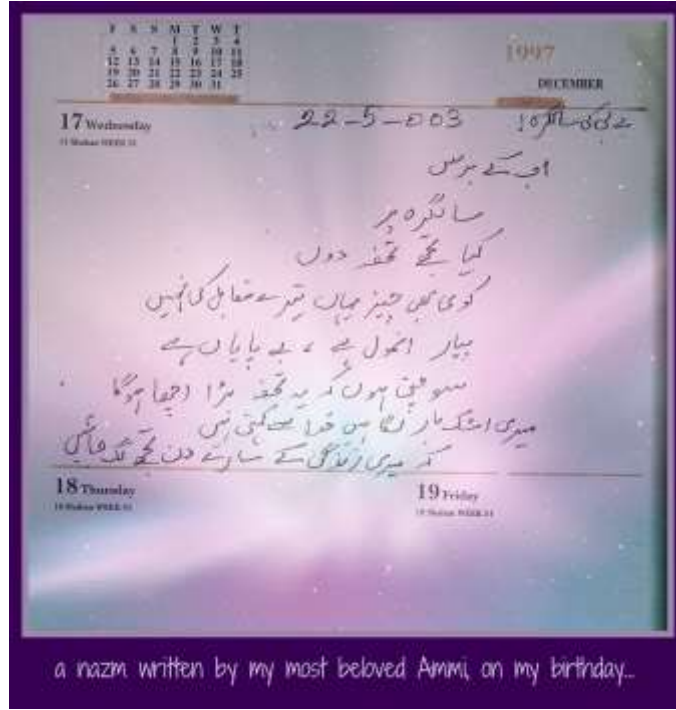 F S S M T W T
1 2 3 4
5 6 7 8 9 10 11
12 13 14 15 16 17 18
19 20 21 22 23 24 25
26 27 28 29 30 31
1997
DECEMBER
17 Wednesday
22-5-003
اب کے برس
سالگرہ پر
کیا تجھے تحفہ دوں
کوئی بھی چیز یہاں تیرے مقابل کی نہیں
پیار انمول ہے، بے پایاں ہے
سوچتی ہوں کہ یہ تحفہ بڑا اچھا ہوگا
میری اشک بار نگاہیں خدا سے کہتی ہیں
کہ میری زندگی کے سارے دن تجھے لگ جائیں
18 Thursday
19 Friday
a nazm written by my most beloved Ammi, on my birthday...